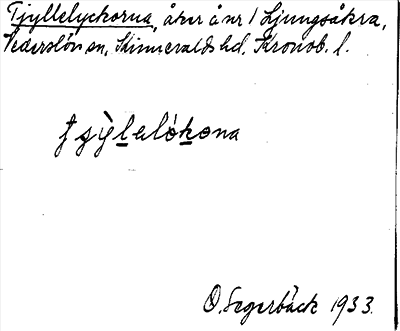 Tjyllelyckorna, åker å nr 1 Ljungsåkra,
Vederslöv sn, Kinnevalds hd. Kronob. l.
O. Segerbäck 1933.